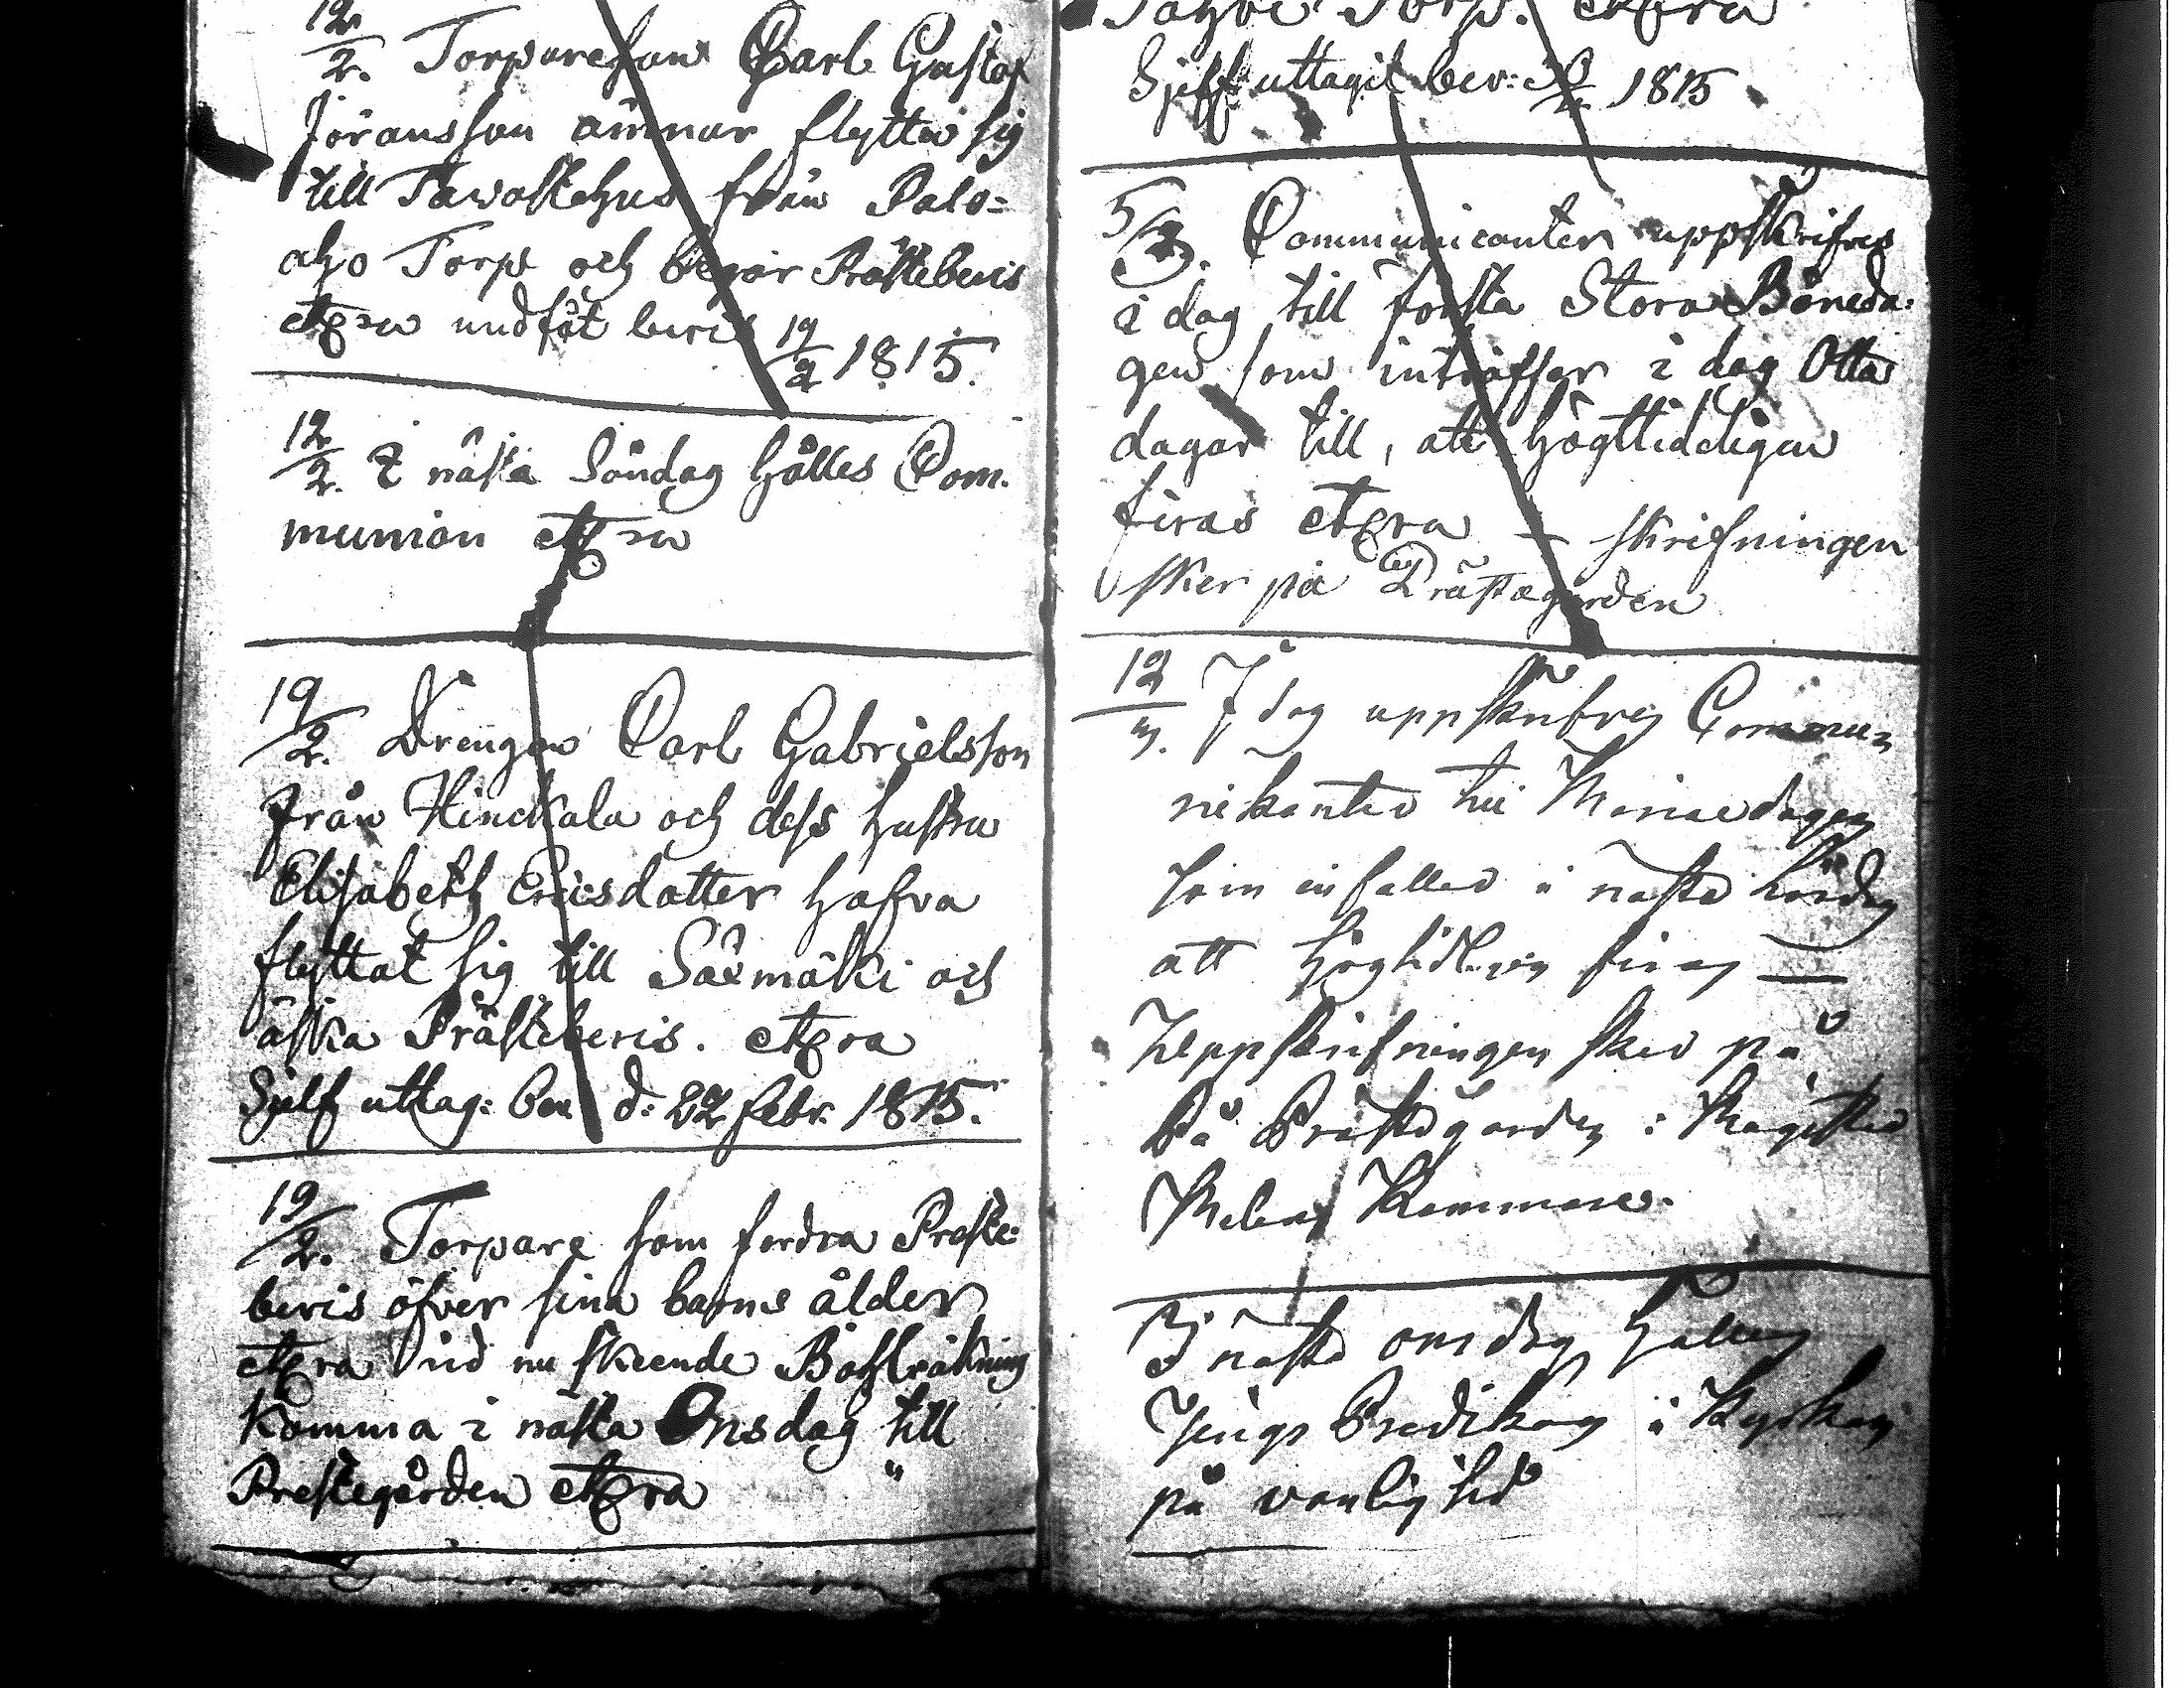 12/2. Torpareson Carl Gustaf
Joransson ämnar flytta sig
till Tawastehus från Palo=
aho Torp och begär Prästebevis
etc:ra undfåt bevis 19/2 1815.
12/2. I nästa Söndag hålles Com=
munion etc:ra
19/2. Drengen Carl Gabrielsson
från Hinckala och dess hustru
Elisabeth Ericsdatter hafva
flyttat sig till Säxmäki och
äska Prästebevis. etc:ra
Sjelf uttag: bev d: 22 Febr. 1815.
19/2. Torpare som fordra Preste=
bevis öfver sina barns ålder
etc:ra vid nu skeende
komma i nästa Onsdag till
Prestegården etc:ra "
Torp. etc:ra
Sjelf uttagit bev: 1815
5/3. Communicanter uppskrifves
i dag till första Stora Böneda=
gen som inträffar i dag Otta
dagar till, att högtideligen
firas etc:ra — skrifningen
sker på Prästegården
12/3. I dag uppskrifves Commu=
nikanter till Mariaedagen
som infaller i nästa
att högtidligen firas —
Uppskrifningen sker på
På Prästegården i Magister
Kammare.
I nästa onsdag hålles
Predikan i Kyrkan
på vanlig tid